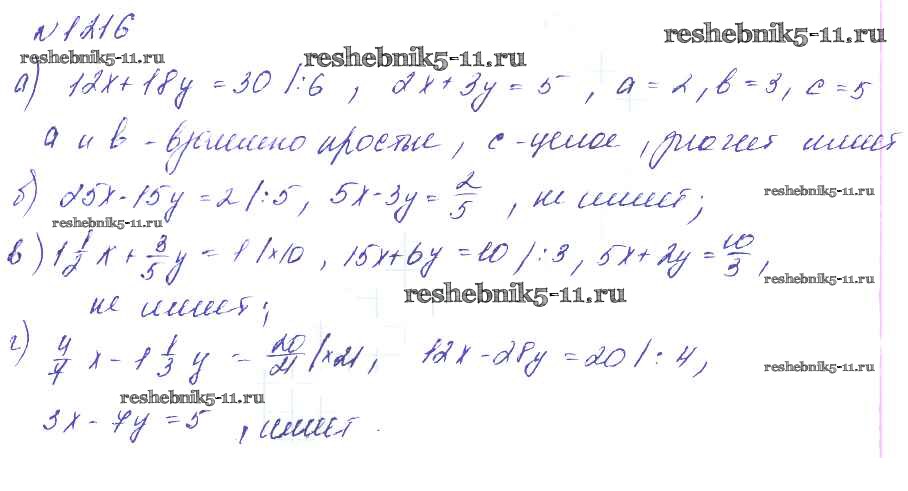 №1216
reshebnik5-11.ru reshebnik5-11.ru reshebnik5-11.ru
а) 12x + 18y = 30 |:6 , 2x + 3y = 5 , a = 2, в = 3, c = 5
а и в - взаимно простые, с - целое, значит имеет
reshebnik5-11.ru
б) 25x - 15y = 2 |:5, 5x - 3y = 2/5 , не имеет;
reshebnik5-11.ru
в) 1 1/2 x + 3/5 y = 1 |×10 , 15x + 6y = 10 |:3, 5x + 2y = 10/3 ,
reshebnik5-11.ru
reshebnik5-11.ru
не имеет;
г) 4/7 x - 1 1/3 y = 20/21 |×21, 12x - 28y = 20 |:4,
reshebnik5-11.ru
reshebnik5-11.ru
3x - 7y = 5 , имеет.